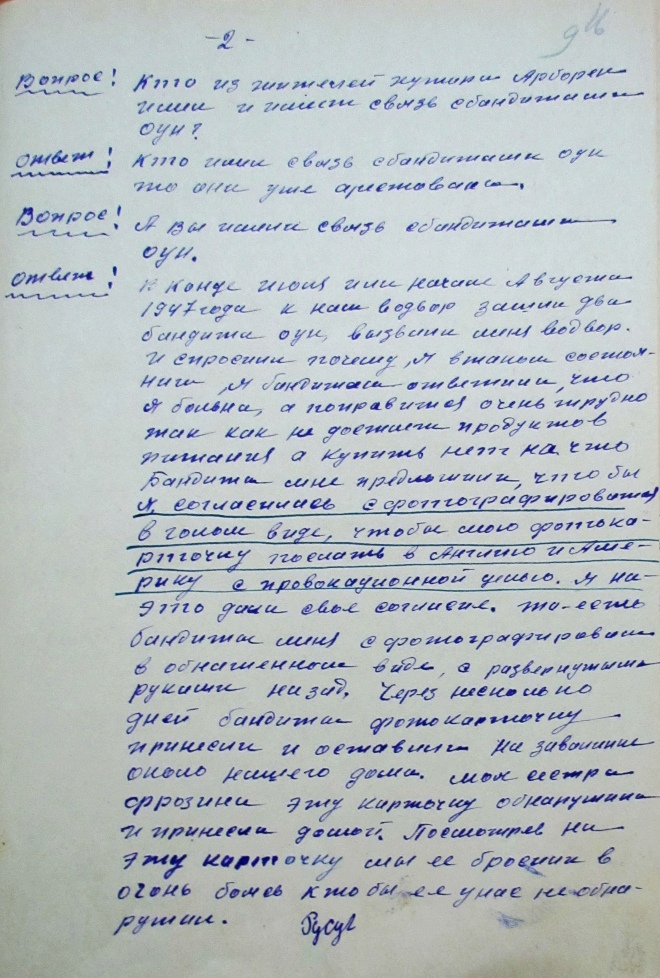 -2-
94
Вопрос! Кто из жителей хутора Арборен
имел и имеет связь сбандитами
оун?
Ответ! Кто имел связь сбандитами оун
то они уже арестованы.
Вопрос! А Вы имели связь сбандитами
оун.
Ответ! В Конце июля или начале Августа
1947 года к нам водвор зашли два
бандита оун, вызвали меня водвор.
И спросили почему, я втаком состоя-
нии, я бандитам ответила, что
я больна, а поправится очень трудно
так как не достает продуктов
питания а купить нет на что
Бандиты мне предложили, что бы
я согласилась сфотографироватся
в голом виде, чтобы мою фотока-
рточку послать в Англию и Аме-
рику с провокационной целью. я на-
это дала свое согласие. та-есть
бандиты меня сфотографировали
в обнаженном виде, с развернутыми
руками назад. Через несколько
дней бандиты фотокарточку
принесли и оставили на завалинке
около нашего дома. моя сестра
Фрозина эту карточку обнаружила
и принесла домой. Посмотрев на
эту карточку мы ее бросили в
огонь боясь ктобы ее унас не обна-
ружил.